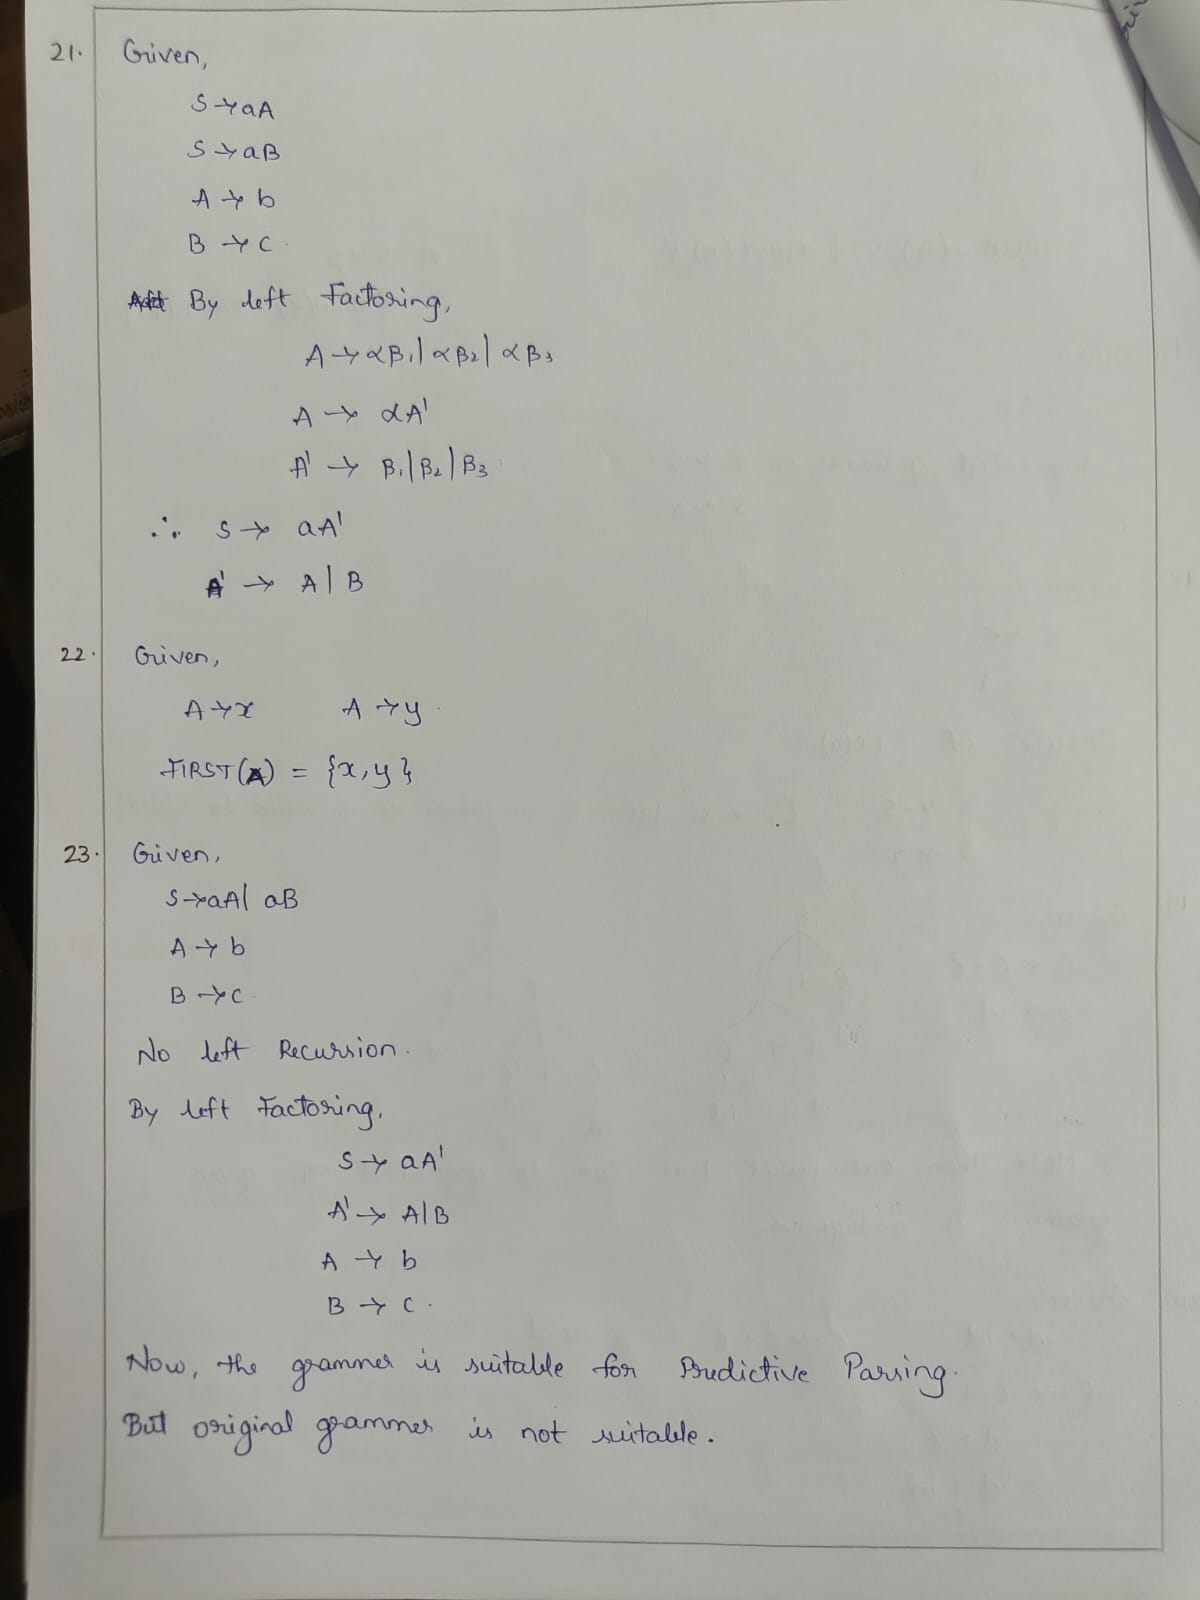 21. Given,
S → aA
S → aB
A → b
B → c
By left Factoring,
A → αB₁ | αB₂ | αB₃
A → αA'
A' → B₁ | B₂ | B₃
∴ S → aA'
A' → A | B
22. Given,
A → x A → y
FIRST(A) = {x, y}
23. Given,
S → aA | aB
A → b
B → c
No left Recursion.
By left Factoring,
S → aA'
A' → A | B
A → b
B → c.
Now, the grammer is suitable for Predictive Parsing.
But original grammer is not suitable.